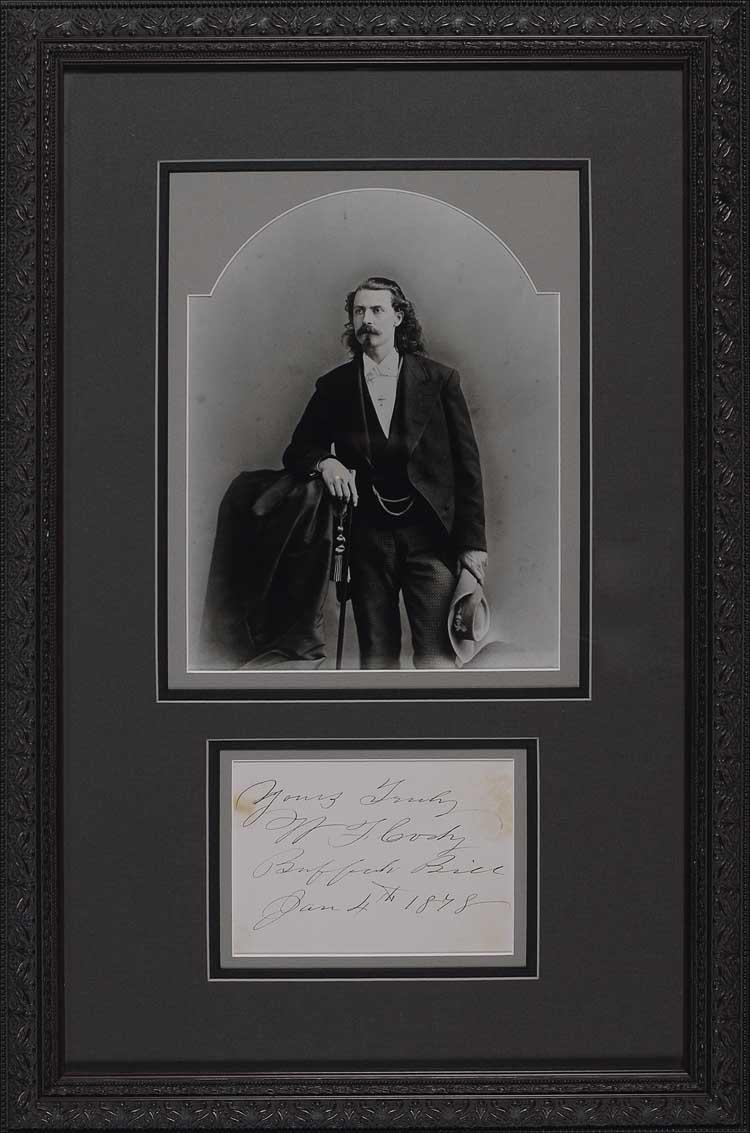 Yours Truly
W F Cody
Buffalo Bill
Jan 4th 1878